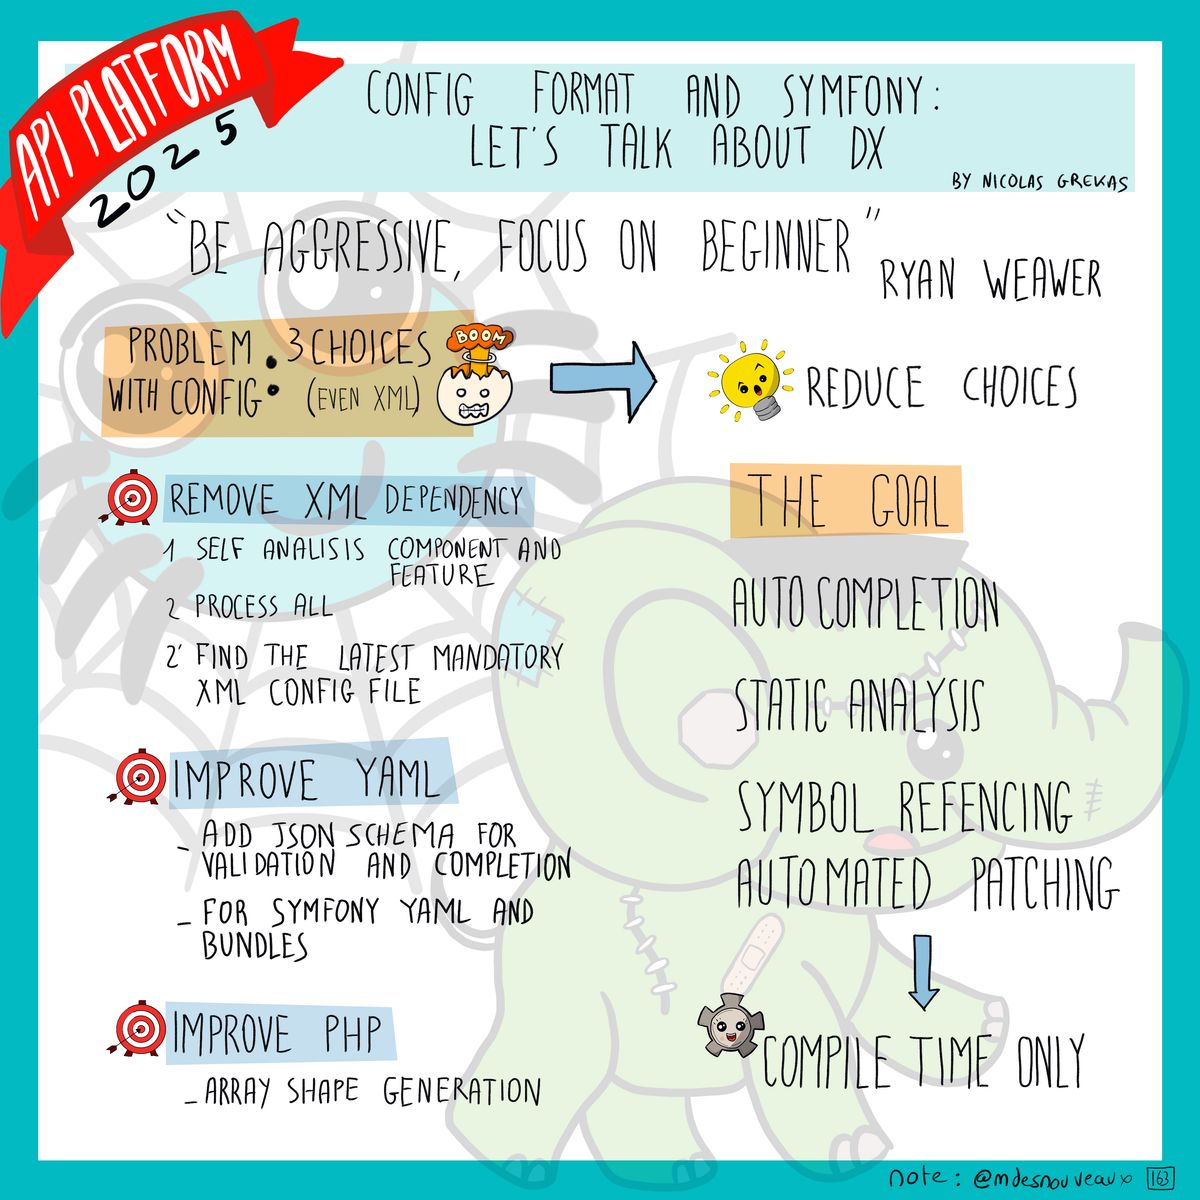 API PLATFORM
2025
CONFIG FORMAT AND SYMFONY:
LET'S TALK ABOUT DX
BY NICOLAS GREKAS
"BE AGGRESSIVE, FOCUS ON BEGINNER"
RYAN WEAWER
PROBLEM
WITH CONFIG:
3 CHOICES
(EVEN XML)
BOOM
REDUCE CHOICES
REMOVE XML DEPENDENCY
1 SELF ANALISIS COMPONENT AND
FEATURE
2 PROCESS ALL
2' FIND THE LATEST MANDATORY
XML CONFIG FILE
IMPROVE YAML
- ADD JSON SCHEMA FOR
VALIDATION AND COMPLETION
- FOR SYMFONY YAML AND
BUNDLES
IMPROVE PHP
- ARRAY SHAPE GENERATION
THE GOAL
AUTOCOMPLETION
STATIC ANALYSIS
SYMBOL REFENCING
AUTOMATED PATCHING
COMPILE TIME ONLY
note: @mdesnouveaux 163